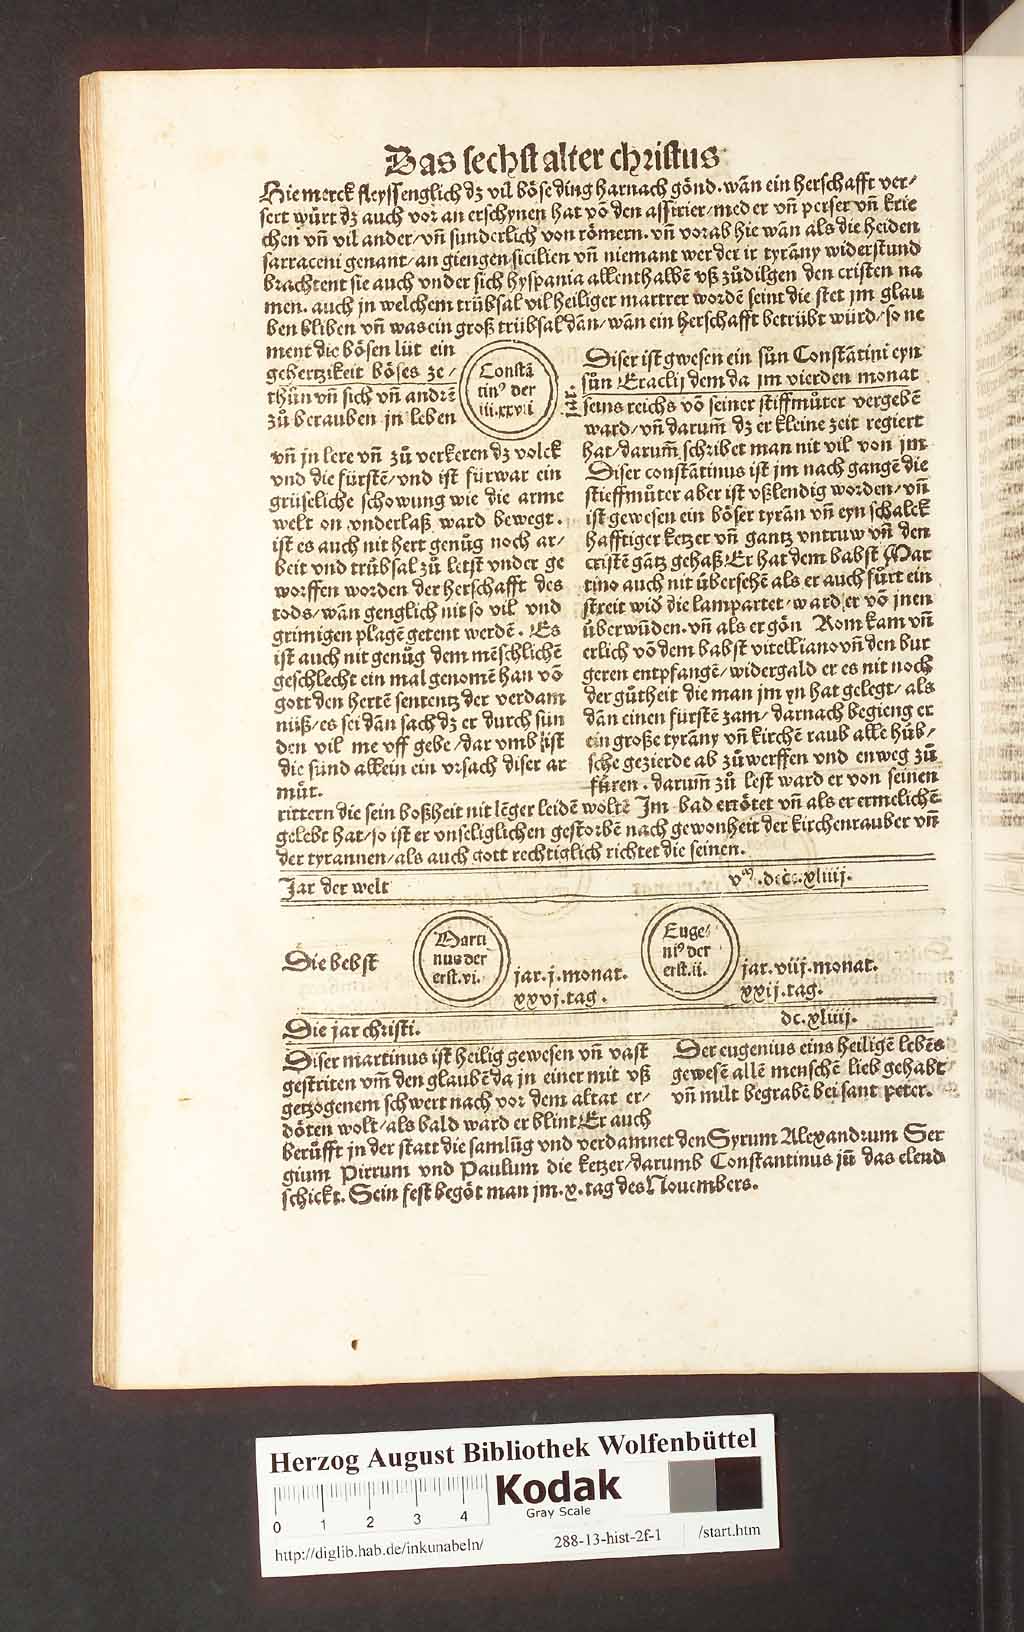 Das sechst alter christus
Hie merck fleyssenglich dz vil böse ding harnach gönd. wan̄ ein herschafft ver/
sert wu̇rt dz auch vor an erschynen hat vō den assirier/med er vn̄ perser vn̄ krie
chen vn̄ vil ander/vn̄ sunderlich von römern. vn̄ vorab hie wan̄ als die heiden
sarraceni genant/an giengen sicilien vn̄ niemant wer der ir tyrāny widerstund
brachtent sie auch vnder sich hyspania allenthalbē vß zůdilgen den cristen na
men. auch jn welchem trübsal vil heiliger martrer wordē seint die stet jm glau
ben bliben vn̄ was ein groß trübsal dan̄/wan̄ ein herschafft betrübt würd/so ne
ment die bösen lüt ein
gehertzikeit böses ze/
thůn vn̄ sich vn̄ andrē
zů berauben jn leben
vn̄ jn lere vn̄ zů verkeren dz volck
vnd die fürstē/vnd ist fürwar ein
grüseliche schowung wie die arme
welt on vnderlaß ward bewegt.
ist es auch nit hert genůg noch ar/
beit vnd trübsal zů letst vnder ge
worffen worden der herschafft des
tods/wan̄ genglich nit so vil vnd
grimigen plagē getent werdē. Es
ist auch nit genůg dem mēschlichē
geschlecht ein mal genomē han vō
gott den hertē sententz der verdam
nüß/es sei dan̄ sach dz er durch sün
den vil me vff gebe/dar vmb ist
die sünd allein ein vrsach diser ar
můt.
Constā
tin⁹ der
iii.xxvii
jar.
Diser ist gwesen ein sůn Constātini eyn
sůn Eraclij dem da jm vierden monat
seins reichs vō seiner stiffmůter vergebē
ward/vn̄ darum̄ dz er kleine zeit regiert
hat/darum̄ schribet man nit vil von jm
Diser constātinus ist jm nach gangē die
stieffmůter aber ist vßlendig worden/vn̄
ist gewesen ein böser tyran̄ vn̄ eyn schalck
hafftiger ketzer vn̄ gantz vntruw vn̄ den
cristē gātz gehaß. Er hat dem babst Mar
tino auch nit übersehē als er auch fu̇rt ein
streit wid̄ die lampartet/ward er vō jnen
überwūden. vn̄ als er gön Rom kam vn̄
erlich vō dem babst vitelliano vn̄ den bur
geren entpfangē/widergald er es nit noch
der gůtheit die man jm yn hat gelegt/als
dan̄ einen fürstē zam/darnach begieng er
ein große tyrāny vn̄ kirchē raub alle hüb/
sche gezierde ab zůwerffen vnd enweg zů
füren. darum̄ zů lest ward er von seinen
rittern die sein boßheit nit lēger leidē woltē Jm bad ertötet vn̄ als er ermelichē
gelebt hat/so ist er vnseliglichen gestorbē nach gewonheit der kirchenrauber vn̄
der tyrannen/als auch gott rechtiglich richtet die seinen.
Jar der welt vᵐ.dccc.xliiij.
Die bebst
Marti
nus der
erst.vi.
jar.j.monat.
xxvj.tag.
Euge/
ni⁹ der
erst.ii.
jar.viij.monat.
xxij.tag.
Die jar christi. dc.xliiij.
Diser martinus ist heilig gewesen vn̄ vast
gestriten vm̄ den glaubē da jn einer mit vß
getzogenem schwert nach vor dem altar er/
döten wolt/als bald ward er blint Er auch
Der eugenius eins heiligē lebēs
gewesē allē menschē lieb gehabt
vn̄ milt begrabē bei sant peter.
berůfft jn der statt die samlūg vnd verdamnet den Syrum Alexandrum Ser
gium Pirrum vnd Paulum die ketzer/darumb Constantinus jn̄ das elend
schickt. Sein fest begöt man jm.x.tag des Nouembers.
Herzog August Bibliothek Wolfenbüttel
0 1 2 3 4
Kodak
Gray Scale
http://diglib.hab.de/inkunabeln/ 288-13-hist-2f-1 /start.htm